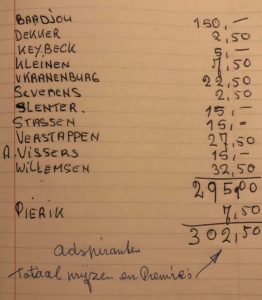 BAADJOU 150,—
DEKKER 2,50
KEYBECK 5,—
KLEINEN 7,50
V KRANENBURG 22,50
SEVERENS 2,50
SLENTER. 15,—
STASSEN 15,—
VERSTAPPEN 27,50
A. VISSERS 15,—
WILLEMSEN 32,50
295,00
PIERIK 7,50
302,50
adspiranten
Totaal prijzen en Premie's